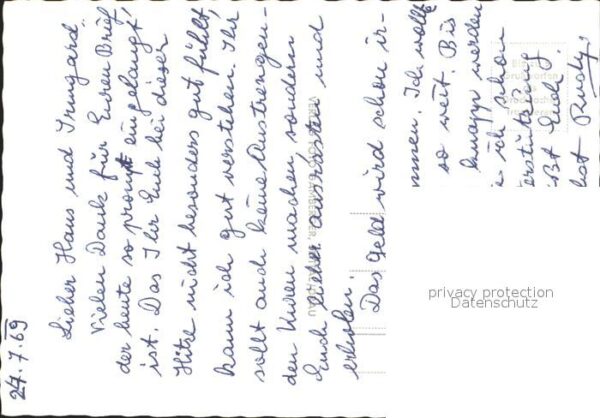 24.7.69
Lieber Hans und Irmgard.
Vielen Dank für Euren Brief
der heute so prompt eingelangt
ist. Das Ihr Euch bei dieser
Hitze nicht besonders gut fühlt,
kann ich gut verstehen. Ihr
sollt auch keine Anstrengen-
den Kuren machen sondern
Euch lieber ausrasten und
erholen.
Das Geld wird schon ir-
men. Ich wollt
so weit. Bis
knapp werden
ich schon
erstützung
ßt Euch
Rudy.
privacy protection
Datenschutz